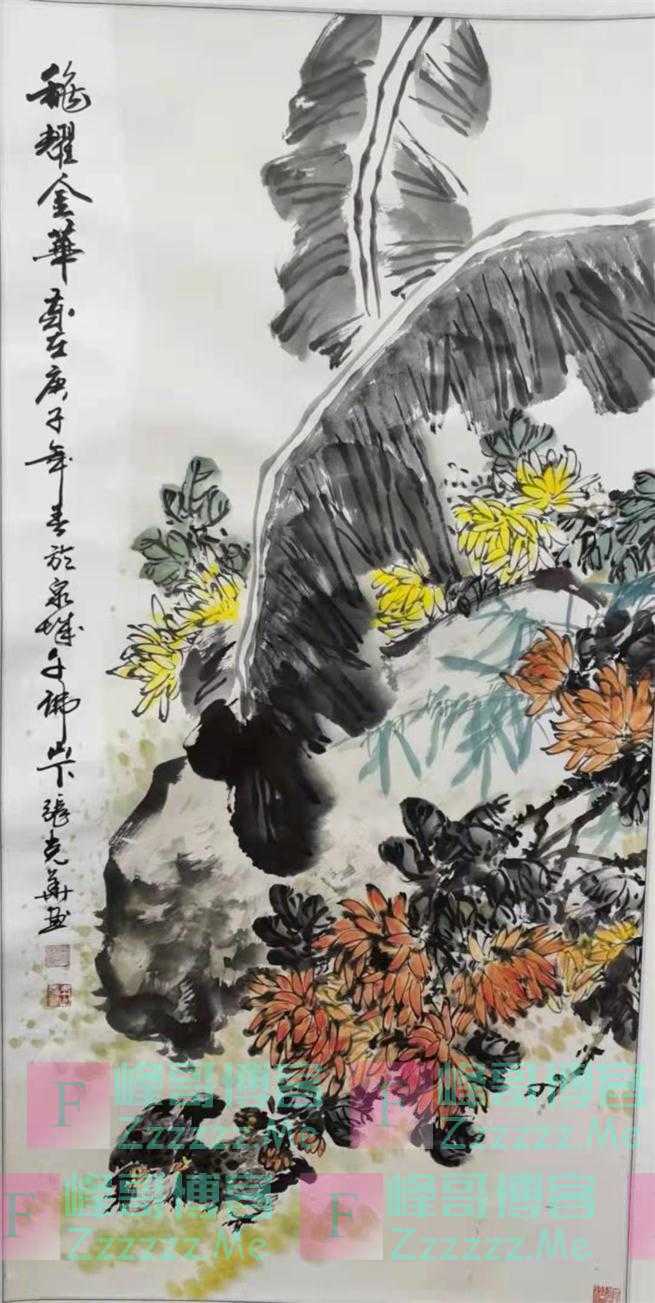 耀金華 歲在庚子年春於泉城千佛山下 張克華画
F 峰哥博客 Zzzzzz.Me
F 峰哥博客 Zzzzzz.Me
F 峰哥博客 Zzzzzz.Me
F 峰哥博客 Zzzzzz.Me